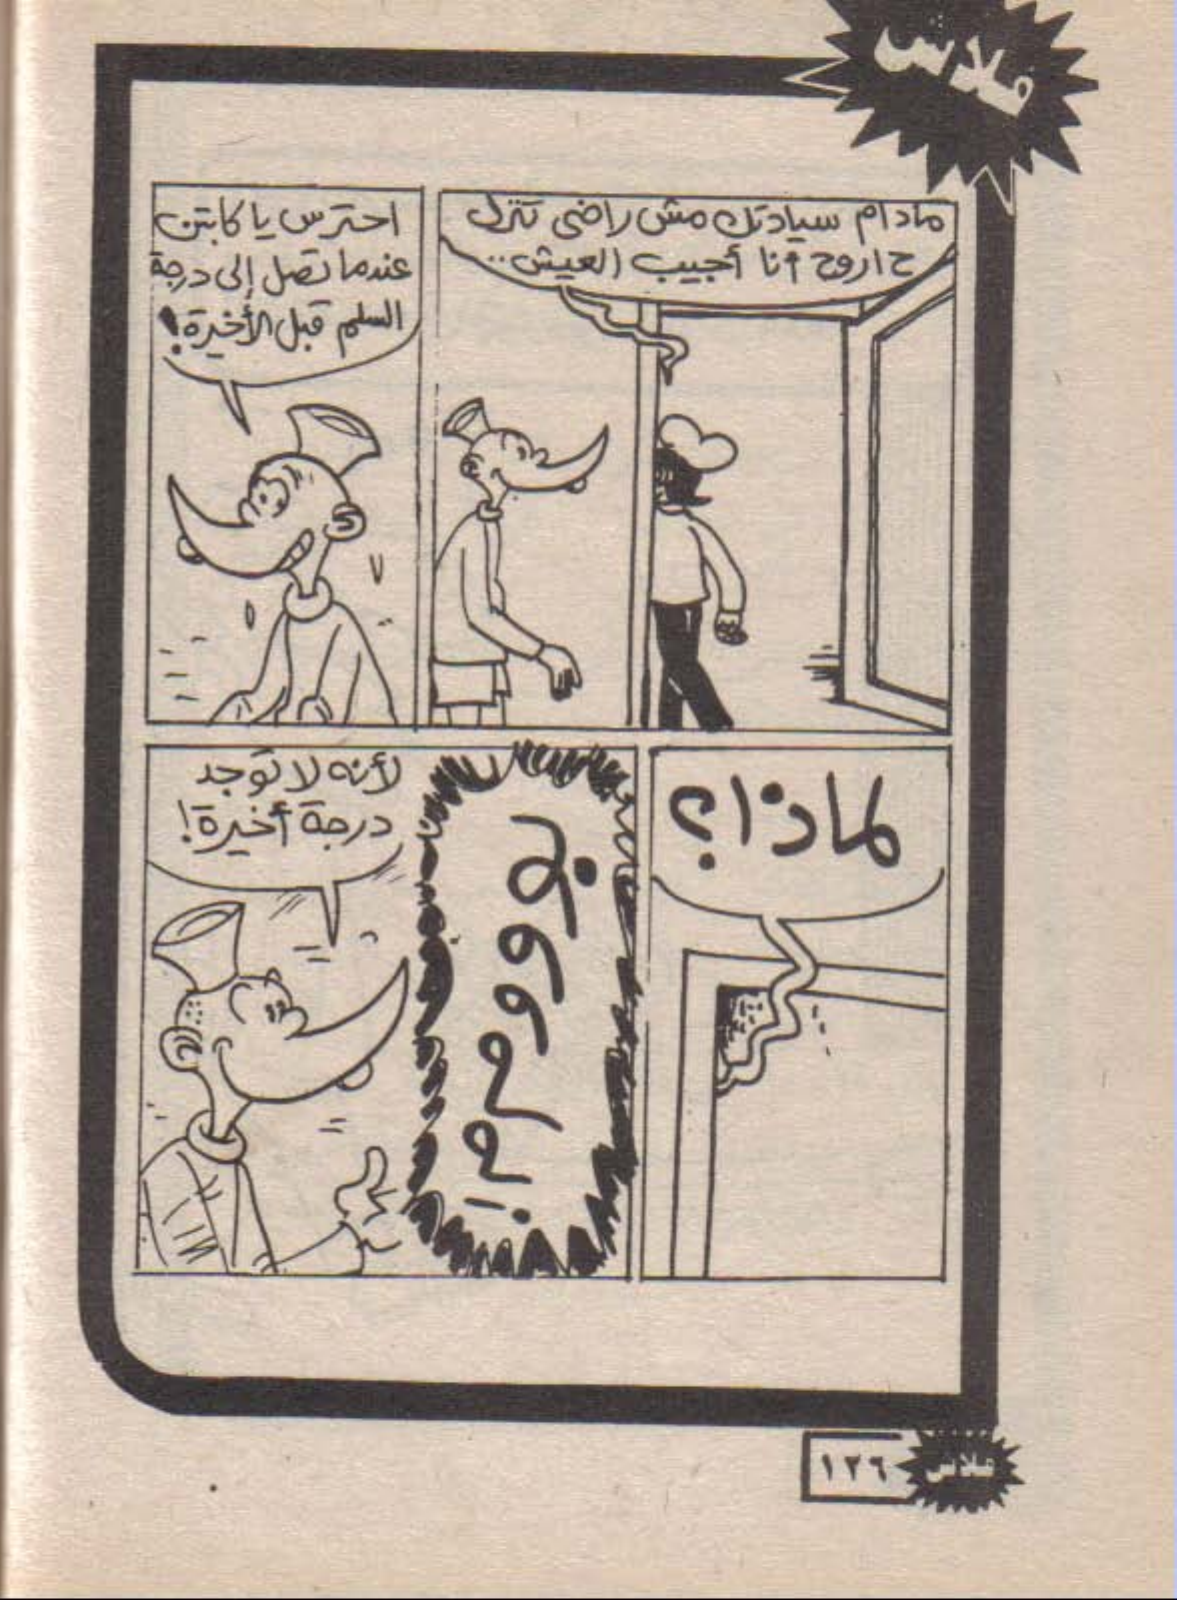 فلاش
مادام سيادتك مش راضى تنزل
حاروح أنا أجيب العيش..
احترس يا كابتن
عندما تصل إلى درجة
السلم قبل الأخيرة!
لماذا؟
لأنه لا توجد
درجة أخيرة!
١٢٦
فلاش